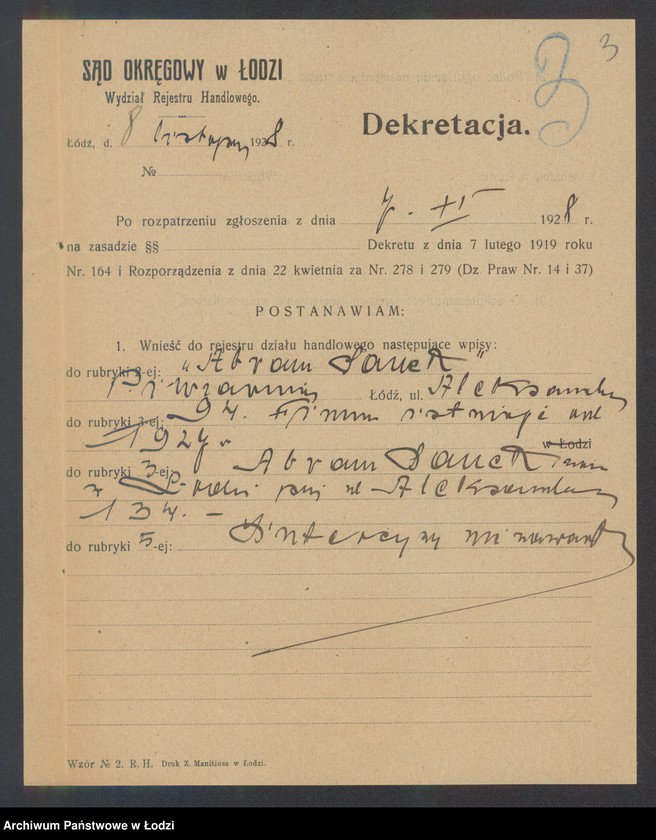 3
SĄD OKRĘGOWY w ŁODZI
Wydział Rejestru Handlowego.
Dekretacja.
Łódź, d. 8 listopada 1928 r.
№
Po rozpatrzeniu zgłoszenia z dnia 7. XI 1928 r.
na zasadzie §§ Dekretu z dnia 7 lutego 1919 roku
Nr. 164 i Rozporządzenia z dnia 22 kwietnia za Nr. 278 i 279 (Dz Praw Nr. 14 i 37)
POSTANAWIAM:
1. Wnieść do rejestru działu handlowego następujące wpisy:
do rubryki 2-ej: "Abram
Piwiarnia Łódź, ul. Aleksandr
do rubryki 3-ej: Firma istnieje od
1927 r w Łodzi
do rubryki 3-ej: Abram
Aleksandr
do rubryki 5-ej: Intercyzy nie zawarł
Wzór № 2. R. H. Druk Z. Manitiusa w Łodzi.
Archiwum Państwowe w Łodzi